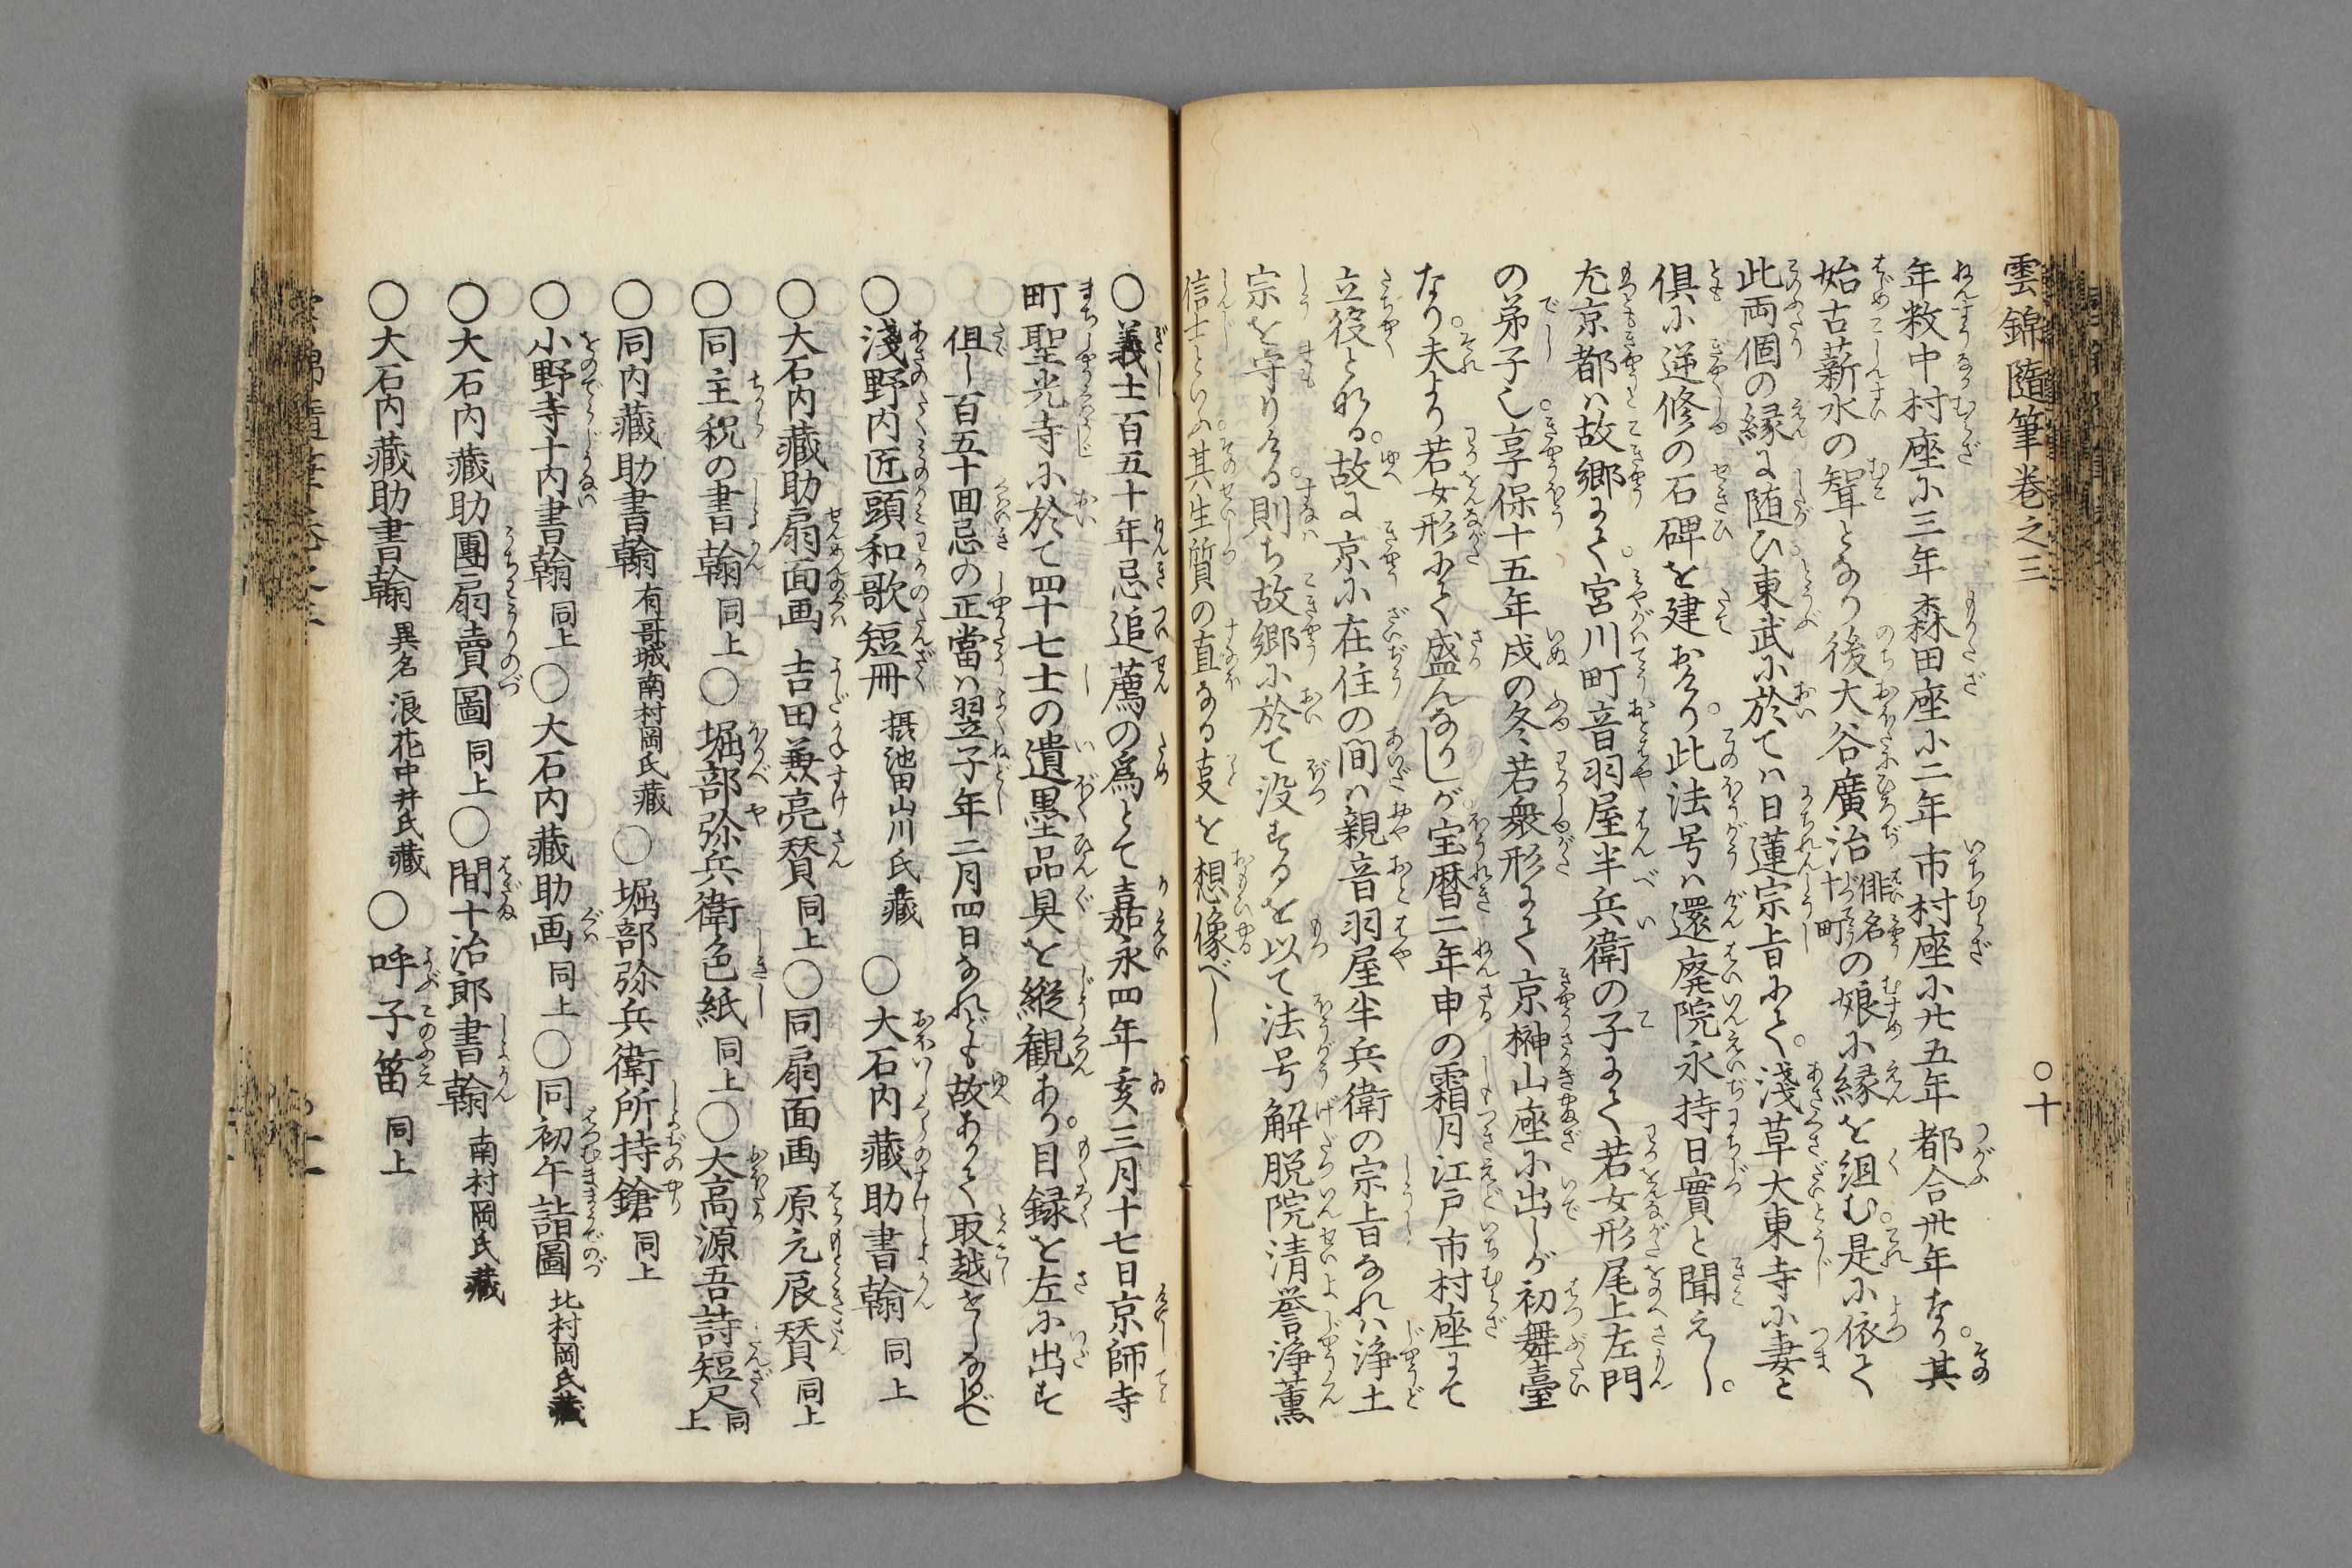 雲錦隨筆巻之三　○十
年数中村座に三年森田座に二年市村座に廿五年都合卅年なり。其
始古薪水の聟となり後大谷廣治俳名十町の娘に縁を組む。是に依て
此両個の縁に随ひ東武に於てハ日蓮宗旨にて。淺草大東寺に妻と
倶に逆修の石碑を建おけり。此法号ハ還廃院永持日實と聞えし。
尤京都ハ故郷にて。宮川町音羽屋半兵衛の子にて若女形尾上左門
の弟子也。享保十五年戌の冬若衆形にて京榊山座に出しが初舞臺
なり。夫より若女形にて盛んなりしが。宝暦二年申の霜月江戸市村座にて
立役となる。故に京に在住の間ハ親音羽屋半兵衛の宗旨なれバ浄土
宗を守りける。則ち故郷に於て没するを以て法号解脱院清誉浄薫
信士といふ。其生質の直なる支を想像べし
○義士百五十年忌追薦の為とて嘉永四年亥三月十七日京師寺
町聖光寺に於て四十七士の遺墨品具を縦観あり。目録を左に出す
但し百五十回忌の正當ハ翌子年二月四日なれども故ありて取越をしなしと
○淺野内匠頭和歌短冊　摂池田山川氏藏　○大石内藏助書翰　同上
○大石内藏助扇面画　吉田兼亮賛　同上○同扇面画　原元辰賛　同上
○同主税の書翰　同上○堀部弥兵衛色紙　同上○大高源吾詩短尺　同上
○同内藏助書翰　有哥城南村岡氏藏○堀部弥兵衛所持鎗　同上
○小野寺十内書翰　同上○大石内藏助画　同上○同初午詣圖　北村岡氏藏
○大石内藏助團扇賣圖　同上○間十治郎書翰　南村岡氏藏
○大石内藏助書翰　異名　浪花中井氏藏○呼子笛　同上